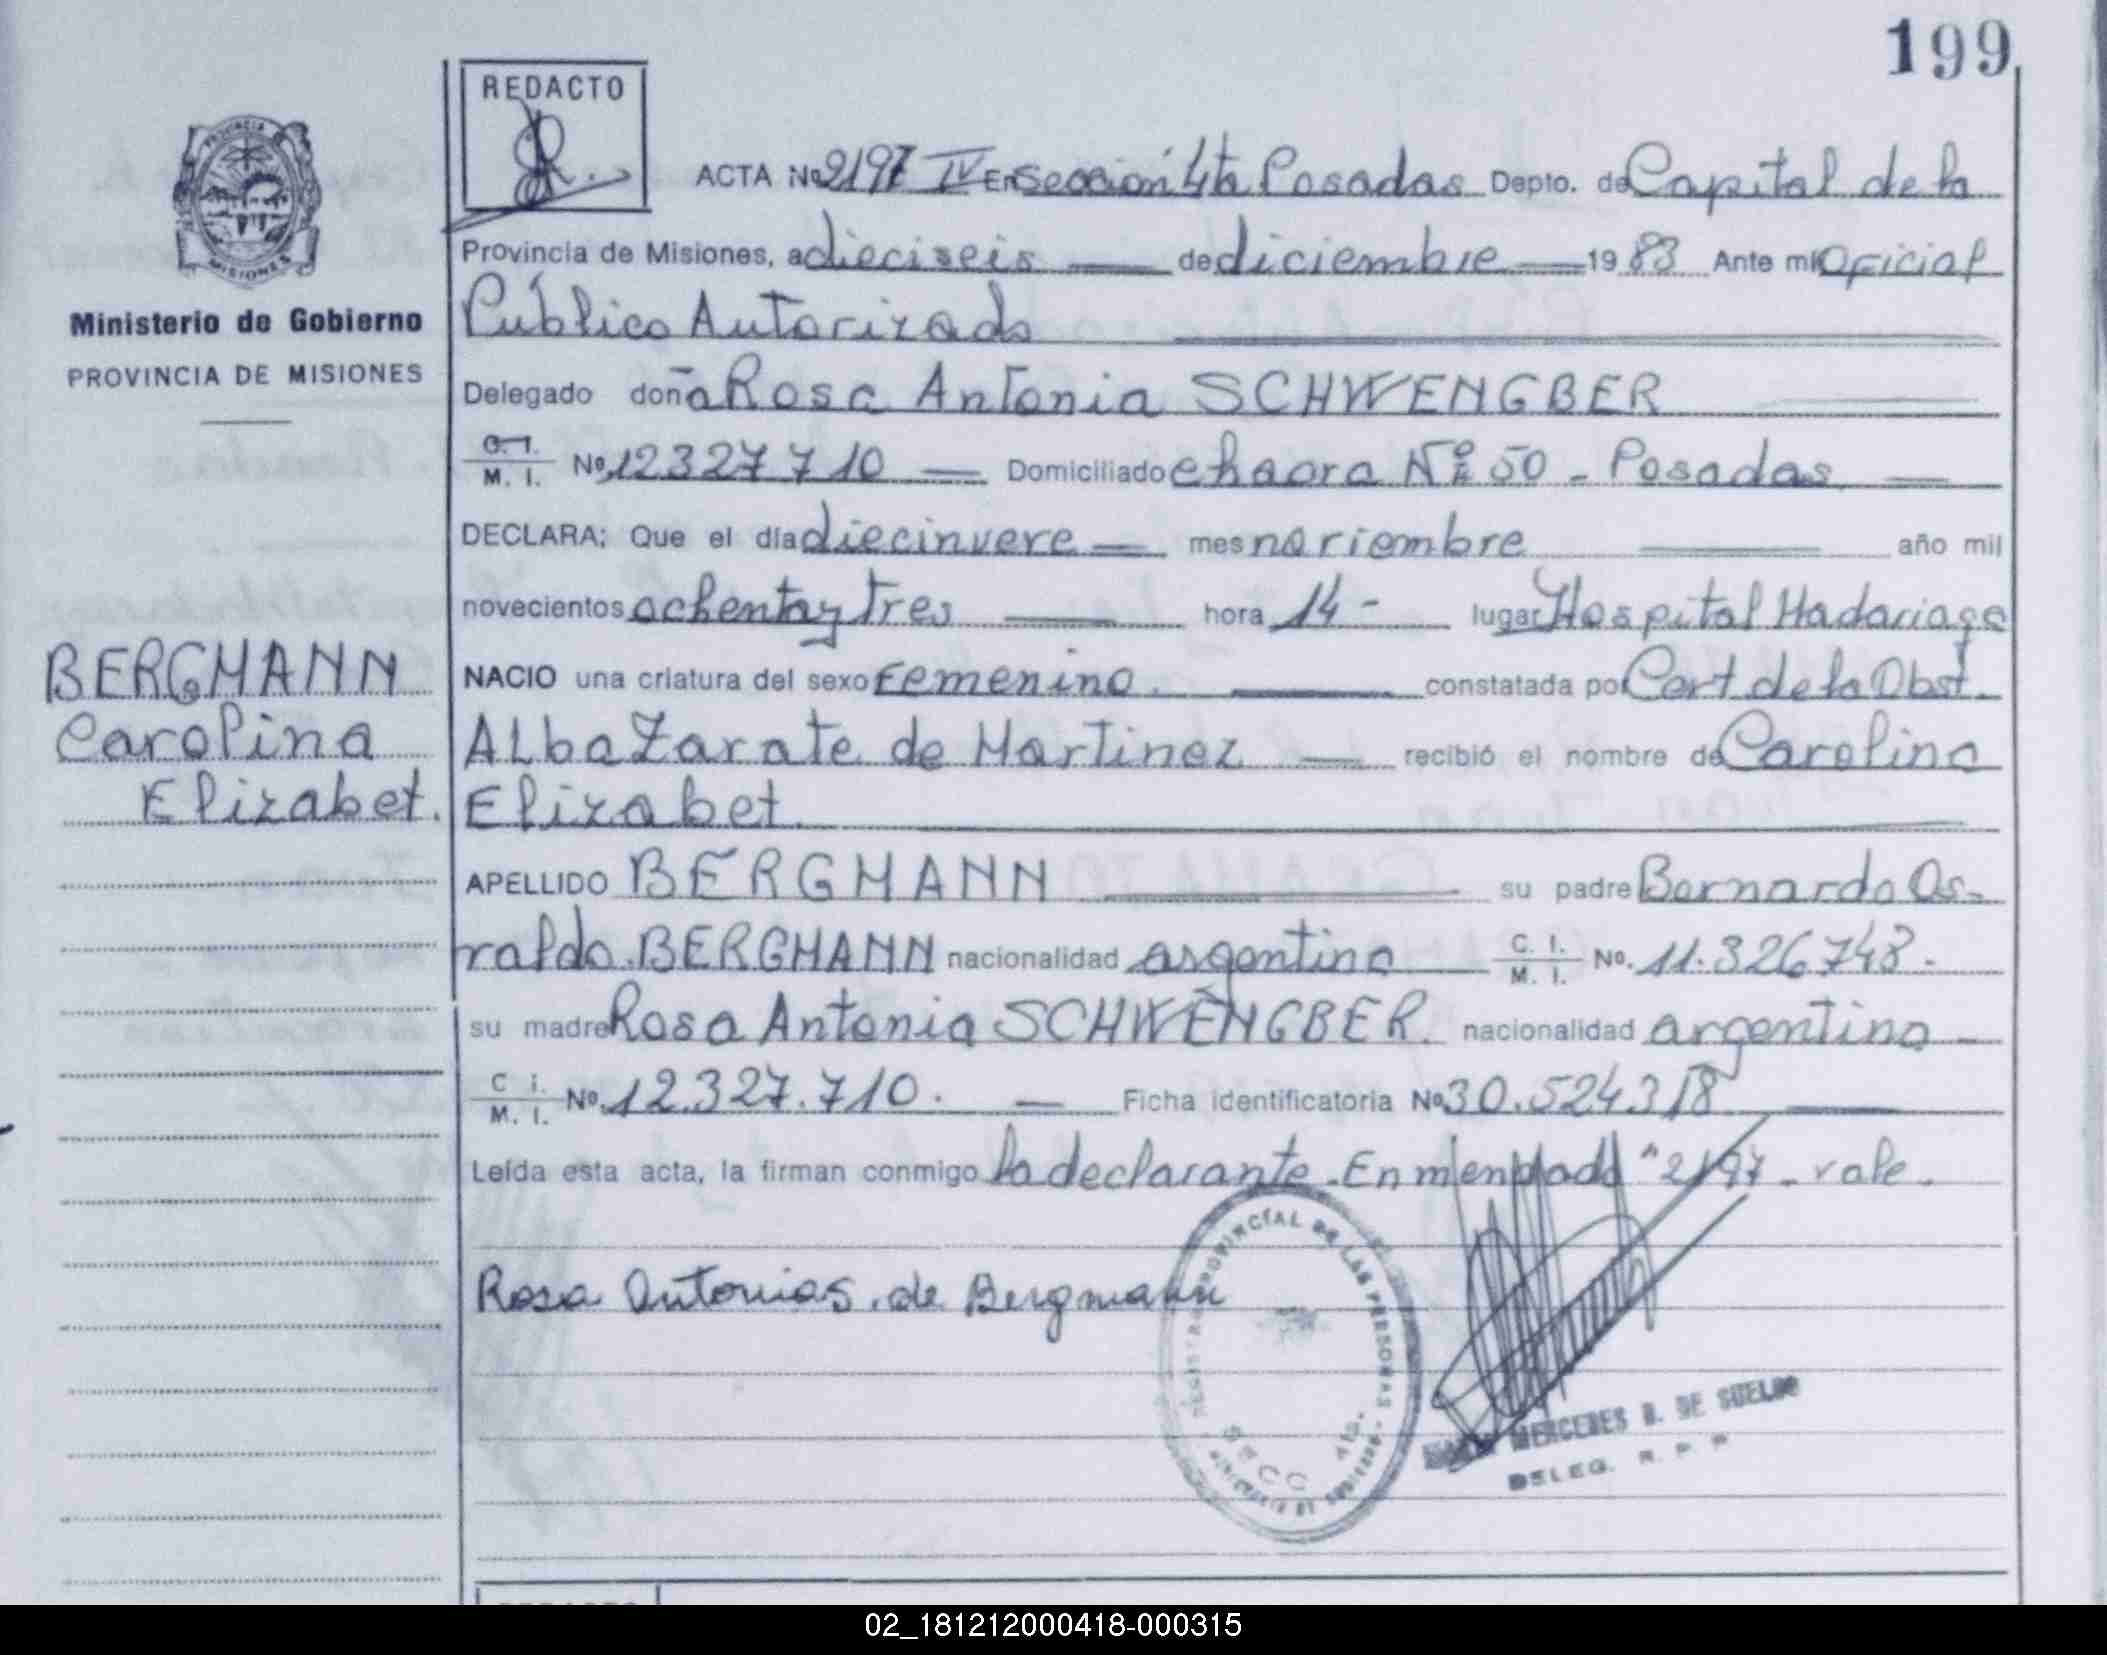 199
REDACTO
PROVINCIA
MISIONES
Ministerio de Gobierno
PROVINCIA DE MISIONES
BERGMANN
Carolina
Elizabet.
ACTA No 2197 IV En Sección 4ta Posadas Depto. de Capital de la
Provincia de Misiones, a dieciseis de diciembre 19 83 Ante mi Oficial
Público Autorizado
Delegado doña Rosa Antonia SCHWENGBER
C. I. M. I. No. 12327710 Domiciliado chacra Nº 50 - Posadas
DECLARA: Que el día diecinueve mes noviembre año mil
novecientos ochenta y tres hora 14 - lugar Hospital Madariaga
NACIO una criatura del sexo femenino. constatada por Cert de la Obst.
Alba Zarate de Martinez recibió el nombre de Carolina
Elizabet
APELLIDO BERGMANN su padre Bernardo Os-
valdo BERGMANN nacionalidad argentina C. I. M. I. No. 11.326748.
su madre Rosa Antonia SCHWENGBER. nacionalidad argentina
C I. M. I. No. 12.327.710. Ficha identificatoria No 30.524318
Leída esta acta, la firman conmigo la declarante. Enmendado "2197 - vale.
Rosa Antonia S. de Bergmann
PROVINCIAL DE LAS PERSONAS
MERCEDES B. DE SUELDO
DELEG. R. P. P.
02_181212000418-000315